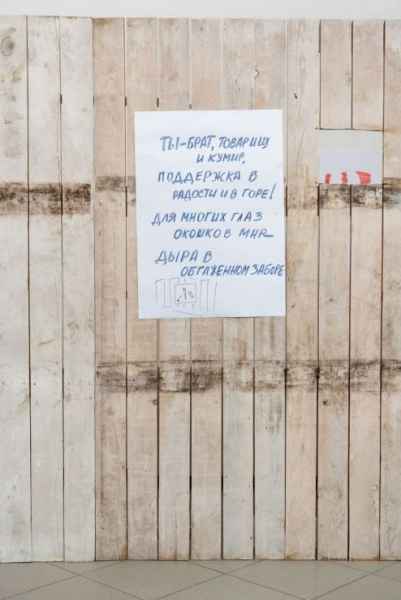 ТЫ-БРАТ, ТОВАРИЩ
И КУМИР,
ПОДДЕРЖКА В
РАДОСТИ И В ГОРЕ!
ДЛЯ МНОГИХ ГЛАЗ
ОКОШКО В МИР
ДЫРА В
ОБГАЖЕННОМ ЗАБОРЕ